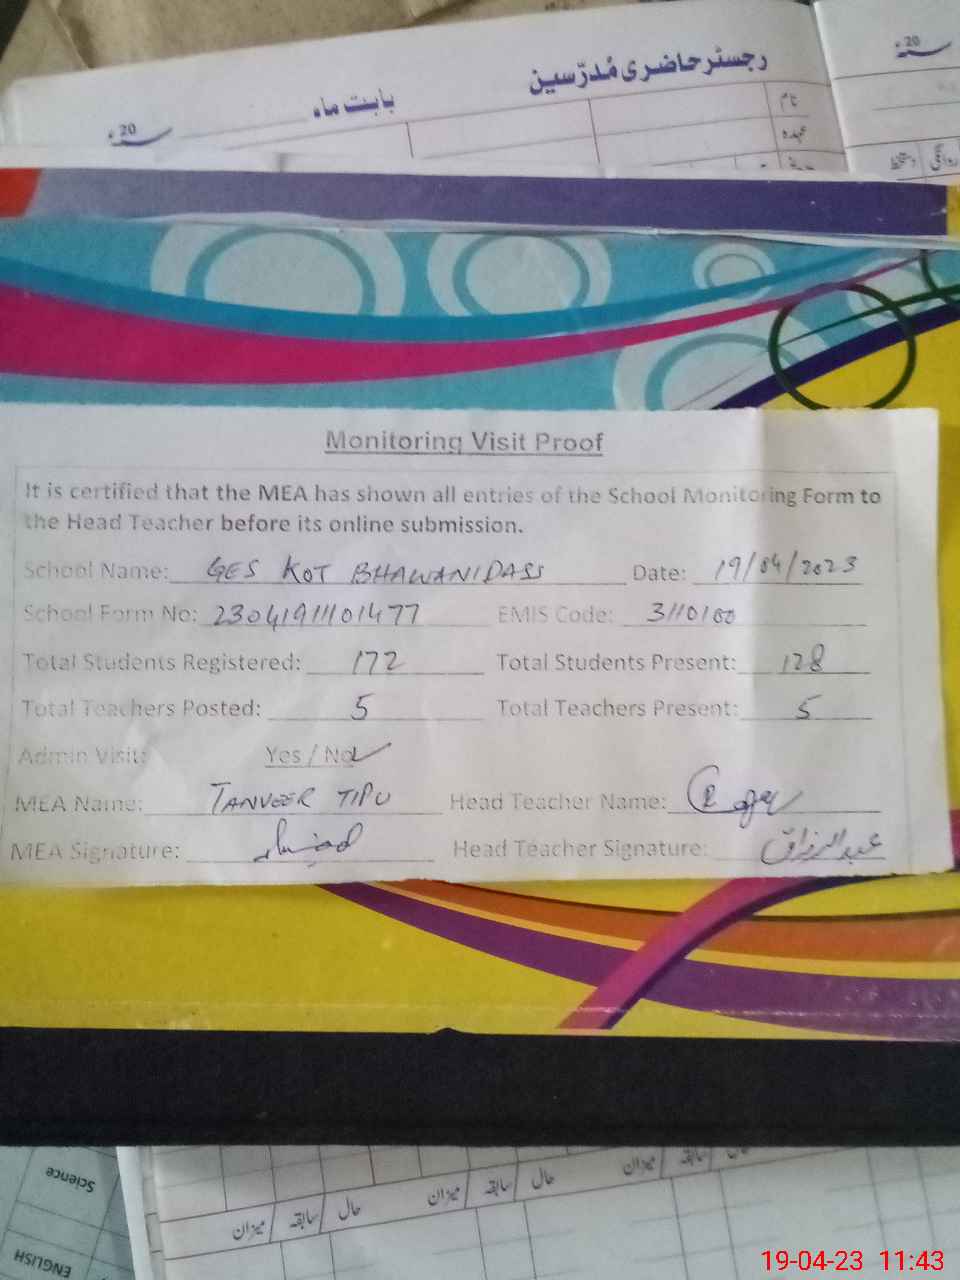 رجسٹر حاضری مُدرّسین
بابت ماہ 20ء
20ء
نام
عہدہ
روانگی دستخط
Monitoring Visit Proof
It is certified that the MEA has shown all entries of the School Monitoring Form to
the Head Teacher before its online submission.
School Name: GES KOT BHAWANIDASS Date: 19/04/2023
School Form No: 2304191101477 EMIS Code: 3110100
Total Students Registered: 172 Total Students Present: 128
Total Teachers Posted: 5 Total Teachers Present: 5
Admin Visit: Yes / No
MEA Name: TANVEER TIPU Head Teacher Name:
MEA Signature: Head Teacher Signature: عبدالرزاق
میزان سابقہ حال میزان سابقہ حال میزان سابقہ حال
Science
ENGLISH
19-04-23 11:43